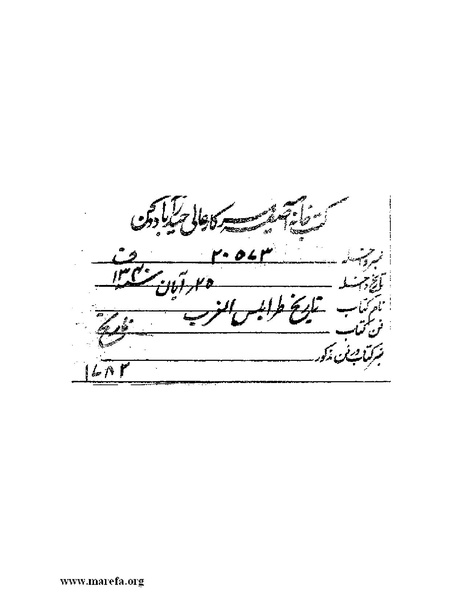 کتب خانہ آصفیہ سرکار عالی حیدرآباد دکن
نمبر داخلہ ۲۰۵۷۳
تاریخ داخلہ ۲۵ر آبان سنہ ۱۳۴۰ ف
نام کتاب تاریخ طرابلس الغرب
فن کتاب تاریخ
نمبر کتاب در فن مذکور ۱۷۸۲
www.marefa.org